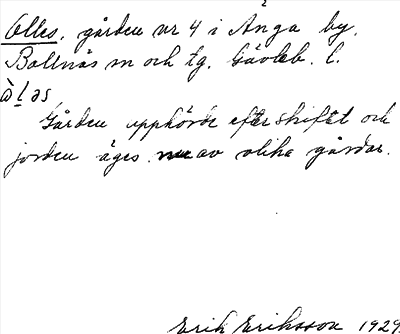 Olles, gården nr 4 i Änga by,
Bollnäs sn och tg. Gävleb. l.
òḷəs
Gården upphörde efter skiftet och
jorden äges nu av olika gårdar.
Erik Eriksson 1929